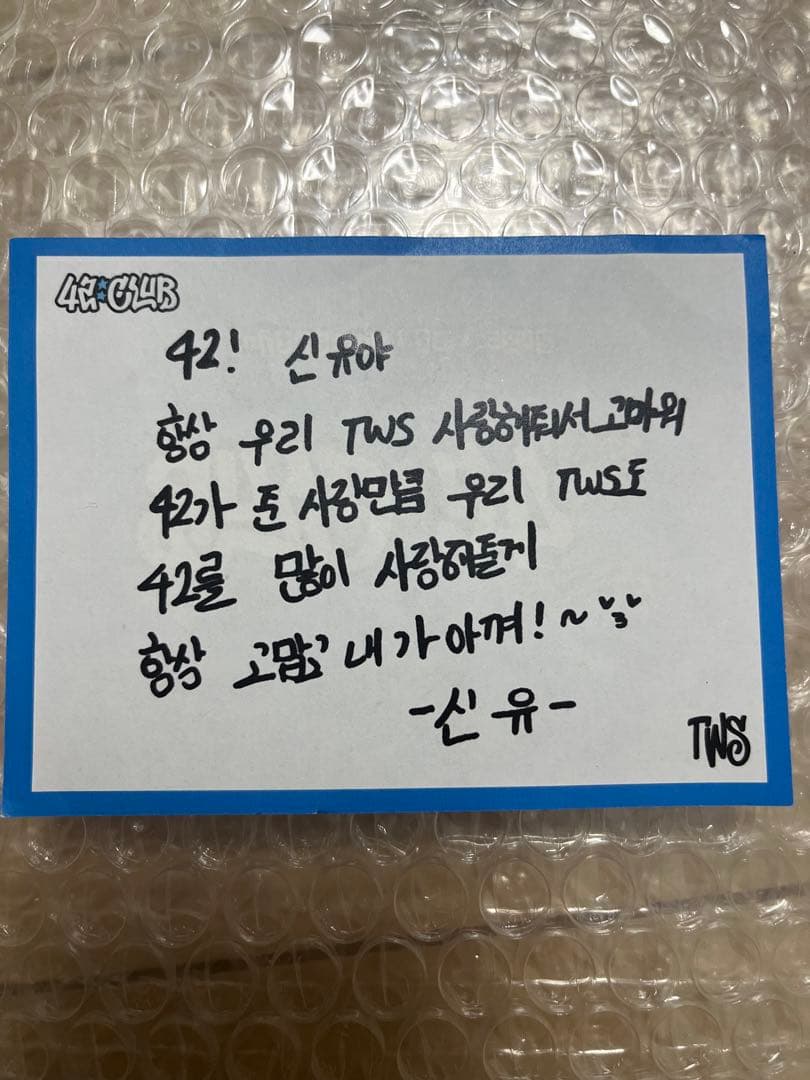 42:CLUB
42! 신유야
항상 우리 TWS 사랑해줘서 고마워
42가 준 사랑만큼 우리 TWS도
42를 많이 사랑해줄게
항상 고맙고 내가 아껴! ~
-신유-
TWS